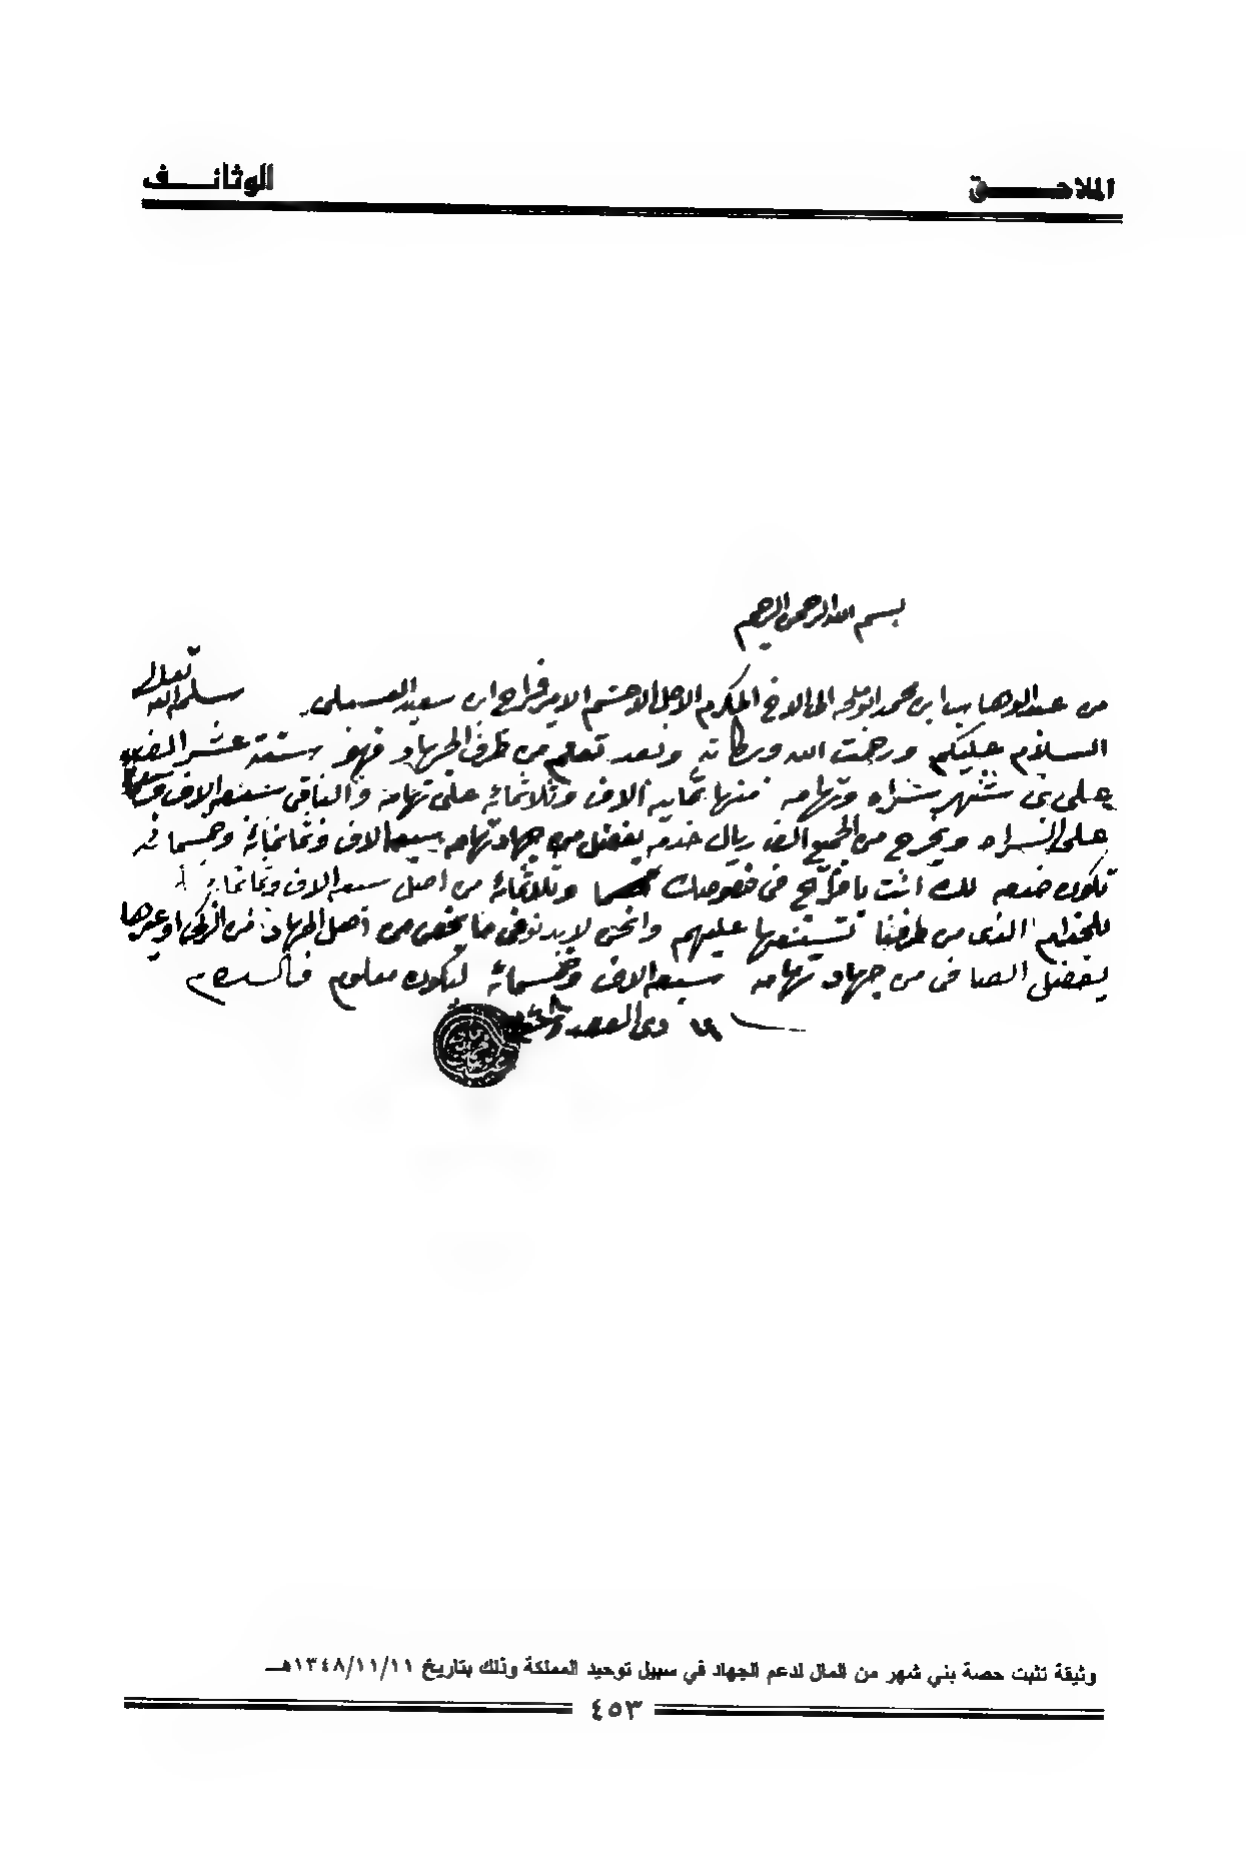 الملاحـــــق
الوثائـــــف
بسم الله الرحمن الرحيم
من عبدالوهاب ابن محمد ابو ملحه الى الاخ المكرم الاجل الاحشم الامير فراج ابن سعيد العسبلي سلمه الله تعالى
السلام عليكم ورحمت الله وبركاته وبعد تعلم من طرف الجهاد فهو ستة عشر الف
على بني شهر سراه وتهامه منها ثمانيه الاف وثلاثمائه على تهامه والباقي سبعه الاف وسبعمائه
على السراه ويخرج من الجميع الف ريال خدمه يفضل من جهاد تهامه سبعه الاف وثمانمائة وخمسمائه
تكون خدمه لك انت يا فراج في خصوصك وثلاثمائة من اصل سبعه الاف وثمانمائه
للخدام الذي من طرفنا تستنعها عليهم وانحن لابد نوفي ما يخص من اصل الجهاد من الزكى او غيرها
يفضل الصافي من جهاد تهامه سبعه الاف وخمسمائة ليكون معلوم والسلام
١١ ذي القعده ٤٨
وثيقة تثبت حصة بني شهر من المال لدعم الجهاد في سبيل توحيد المملكة وذلك بتاريخ ١٣٤٨/١١/١١هـ
٤٥٣